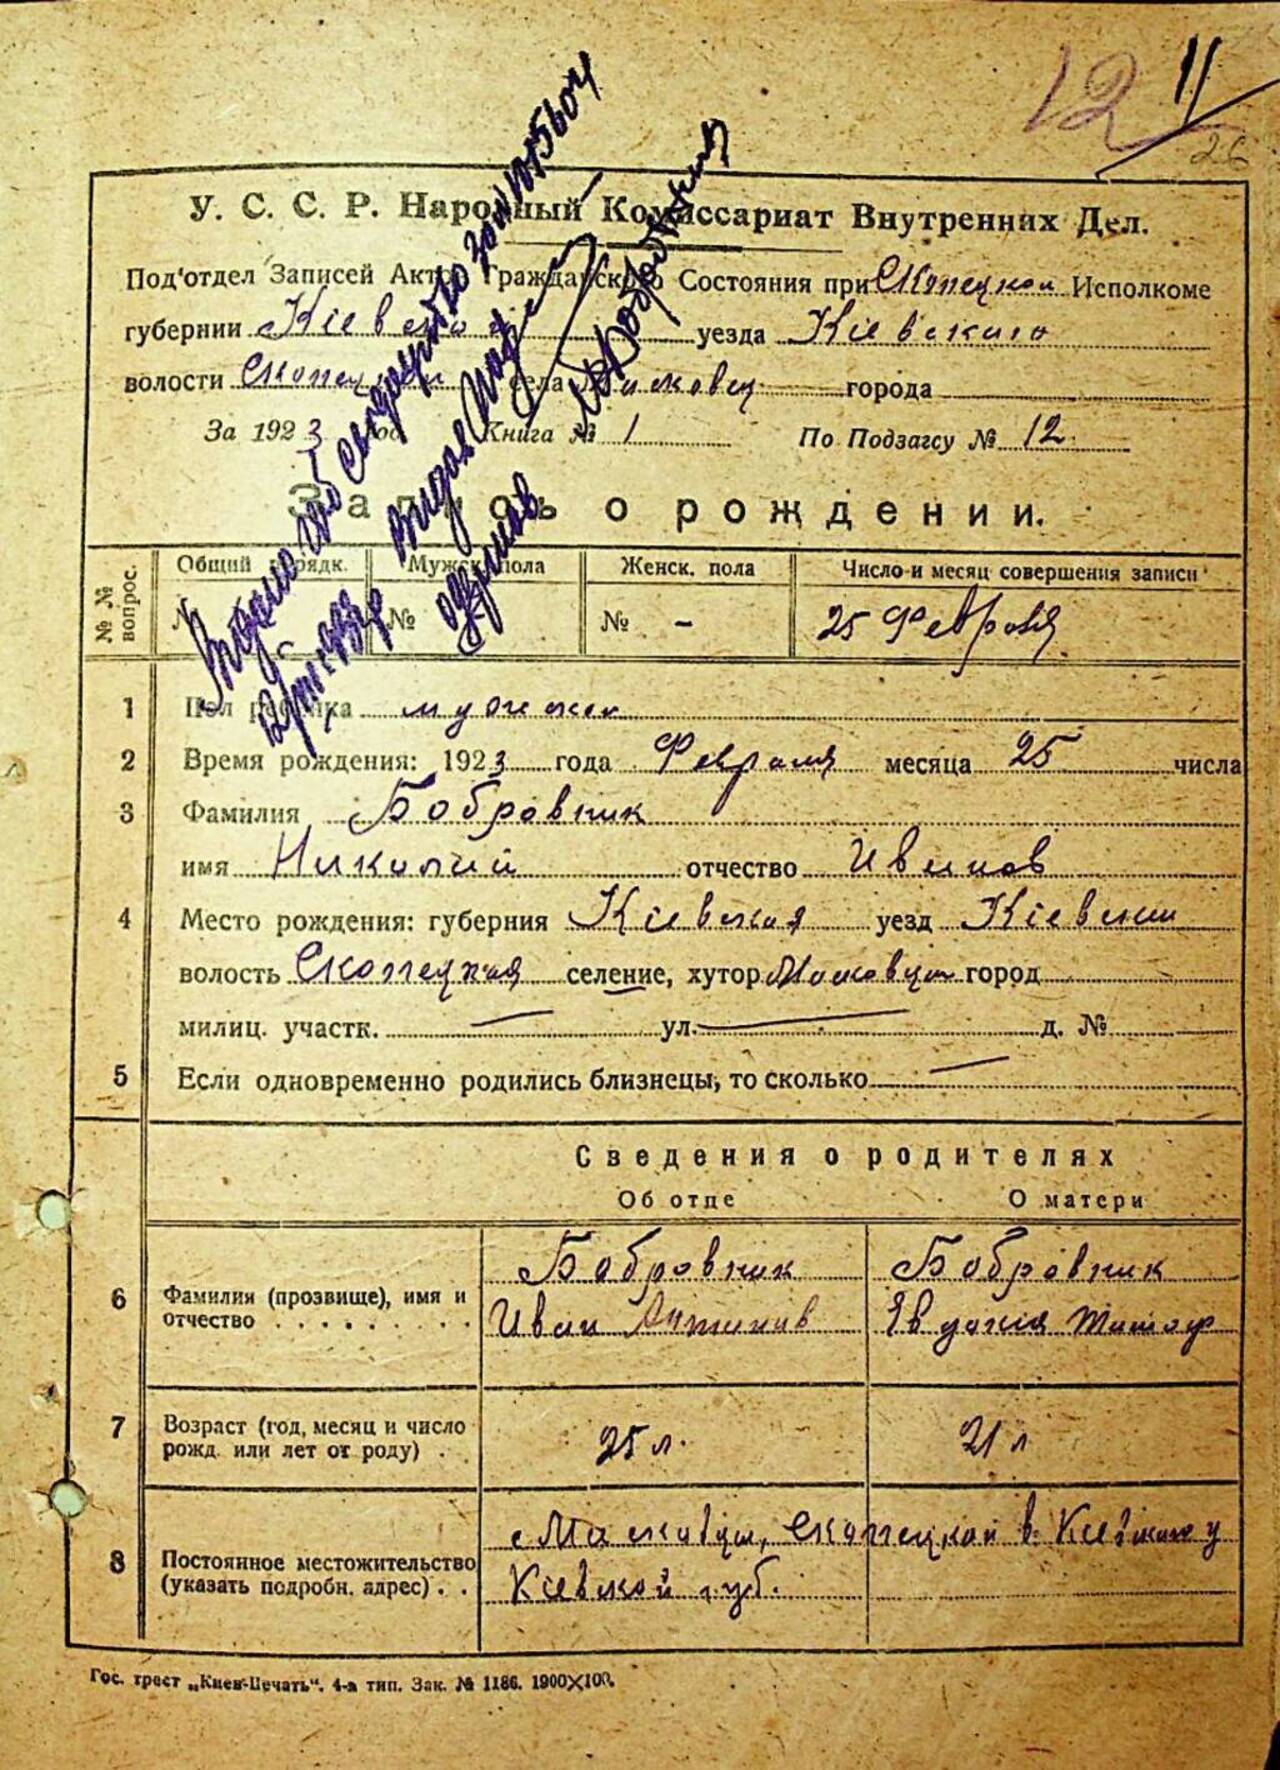 12 11
26
У. С. С. Р. Народный Комиссариат Внутренних Дел.
Под'отдел Записей Актов Гражданского Состояния при Скопецком Исполкоме
губернии Кіевской уезда Кіевскаго
волости Скопецкой села города
За 1923 год Книга № 1 По Подзагсу № 12
Запись о рождении.
№ № вопрос. Общий порядк. Мужск. пола Женск. пола Число и месяц совершения записи
№ № № – 25 Февраля
1 Пол ребенка мужеск
2 Время рождения: 1923 года Февраля месяца 25 числа
3 Фамилия Бобровник
имя Николай отчество Иванов
4 Место рождения: губерния Кіевская уезд Кіевский
волость Скопецкая селение, хутор Масковцы город
милиц. участк. — ул. — д. №
5 Если одновременно родились близнецы, то сколько —
Сведения о родителях
Об отце О матери
6 Фамилия (прозвище), имя и отчество
Бобровник Бобровник
Иван Евдокия
7 Возраст (год, месяц и число рожд. или лет от роду) 25 л. 21 л
8 Постоянное местожительство (указать подробн. адрес)
с Масковцы, Скопецкой в. Киевского у
Кіевской губ.
Гос. трест „Киев-Печать“. 4-я тип. Зак. № 1186. 1900×100.